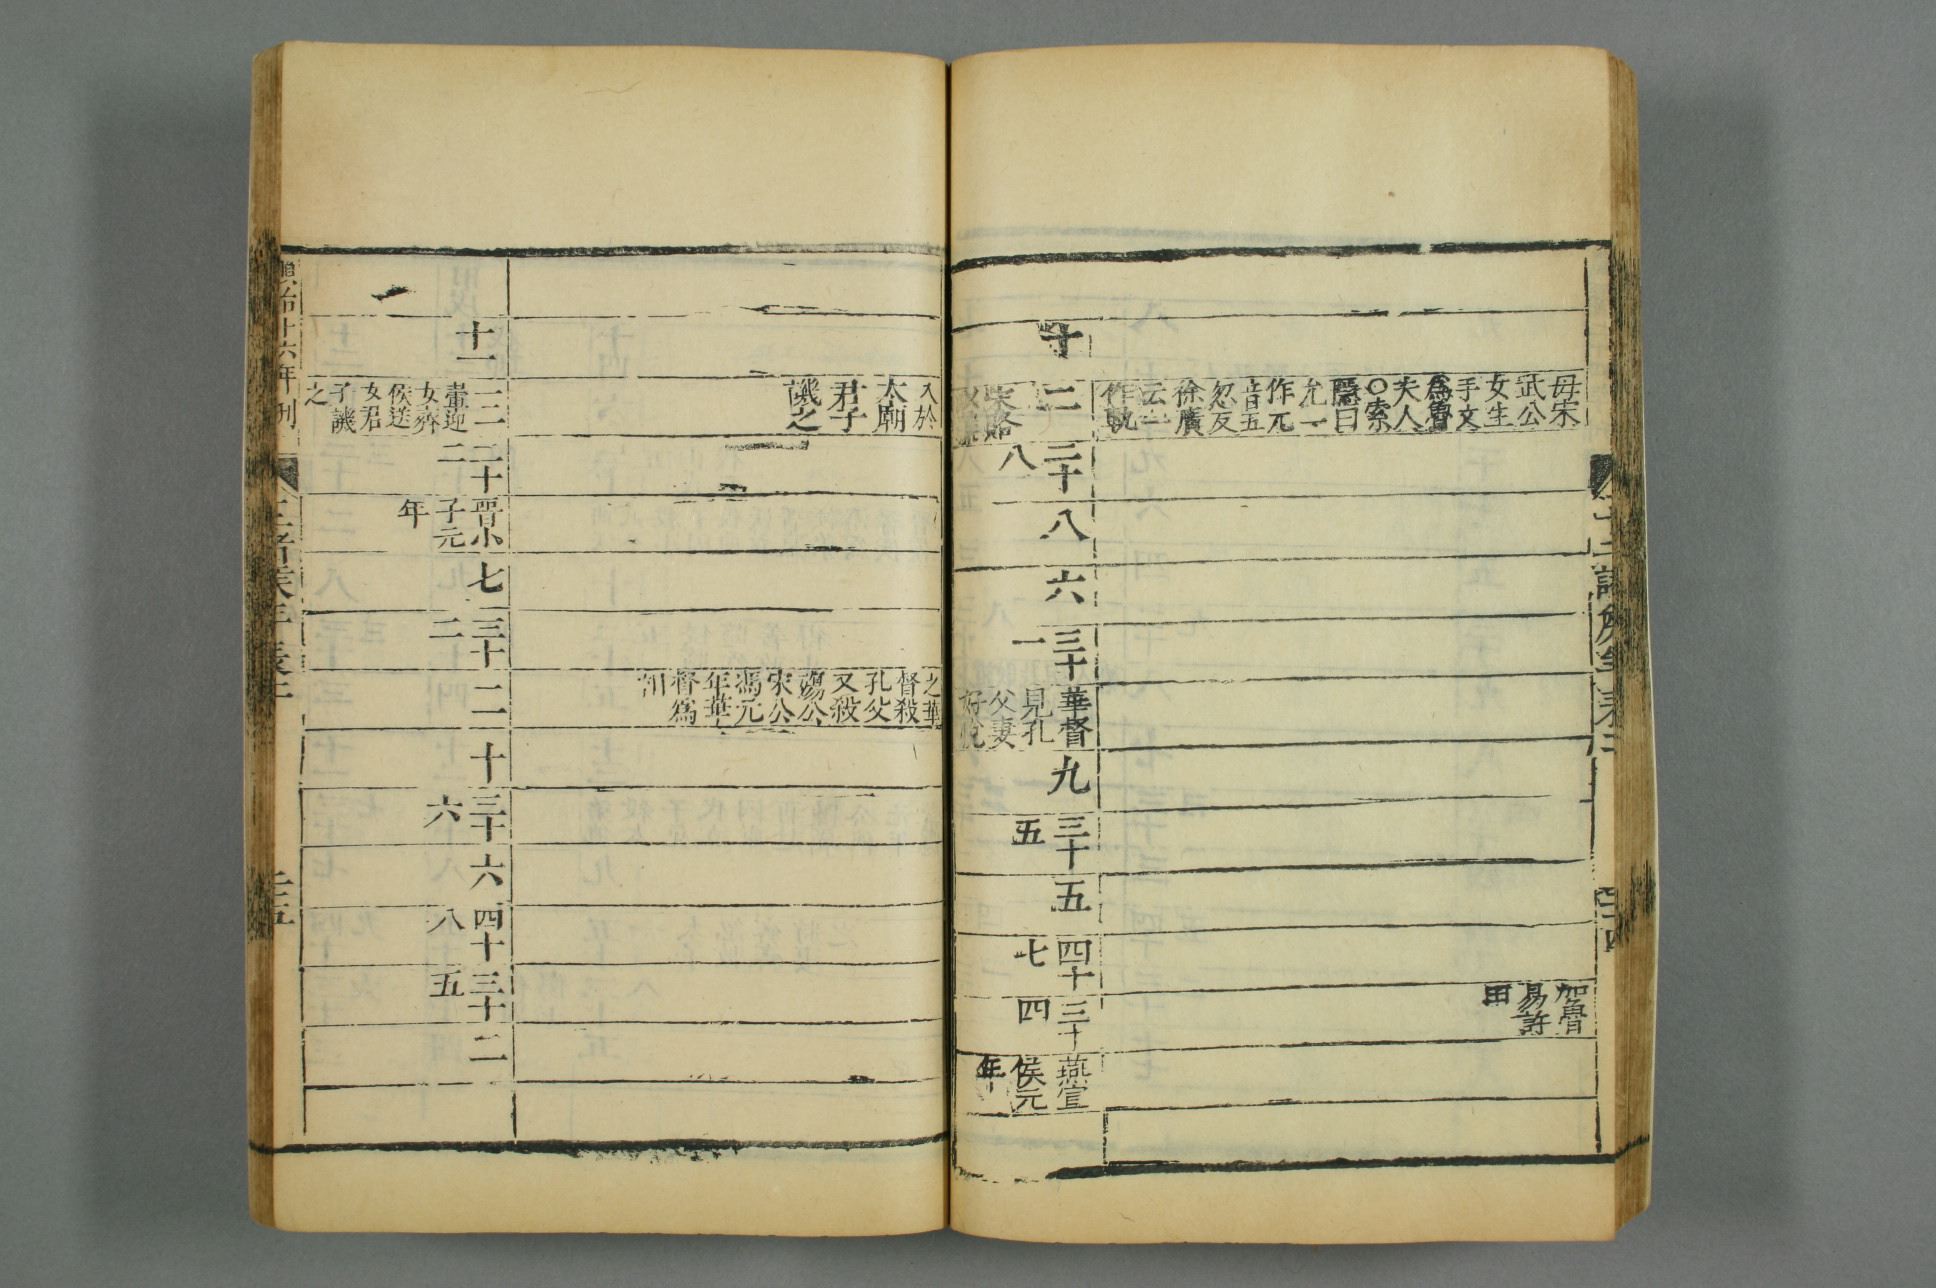 母宋
武公
女生
手文
爲魯
夫人
○索
隱曰
允一
作兀
音五
忽反
徐廣
云一
作軌
加魯
易許
田
十
二
宋賂
三十
八
八
六
三十
一
華督
見孔
父妻
好悅
九
三十
五
五
四十
七
三十
四
燕宣
侯元
年
入於
太廟
君子
譏之
之華
督殺
孔父
又殺
殤公
宋公
馮元
年華
督爲
相
十一
三
翬迎
女齊
侯送
女君
子譏
之
二十
二
晉小
子元
年
七
三十
二
二
十
三十
六
六
四十
八
三十
五
二
十六年刊